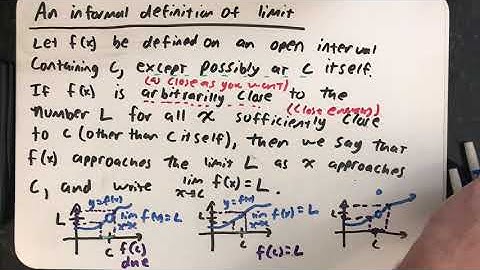 An informal definition of limit
Let f(x) be defined on an open interval
Containing C, except possibly at C itself.
(as close as you want)
If f(x) is arbitrarily close to the
(close enough)
number L for all x sufficiently close
to C (other than C itself), then we say that
f(x) approaches the limit L as x approaches
C, and write lim x→c f(x) = L.
y=f(x)
L
lim x→c f(x)=L
c
f(c)
dne
y=f(x)
L
lim f(x)=L
c
f(c)=L
L
c